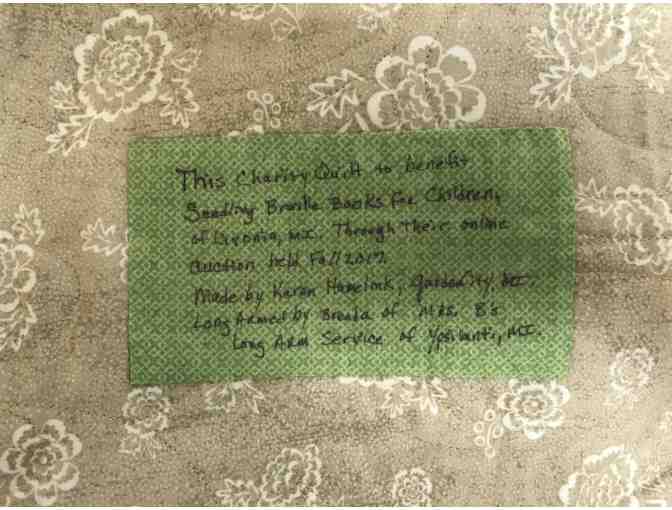 This Charity Quilt to benefit
Seedling Braille Books for Children,
of Livonia, MI. Through Their online
auction held Fall 2017.
Made by Karen Hamelink, Garden City, MI.
Long Armed by Brenda of Mrs. B's
Long Arm Service of Ypsilanti, MI.